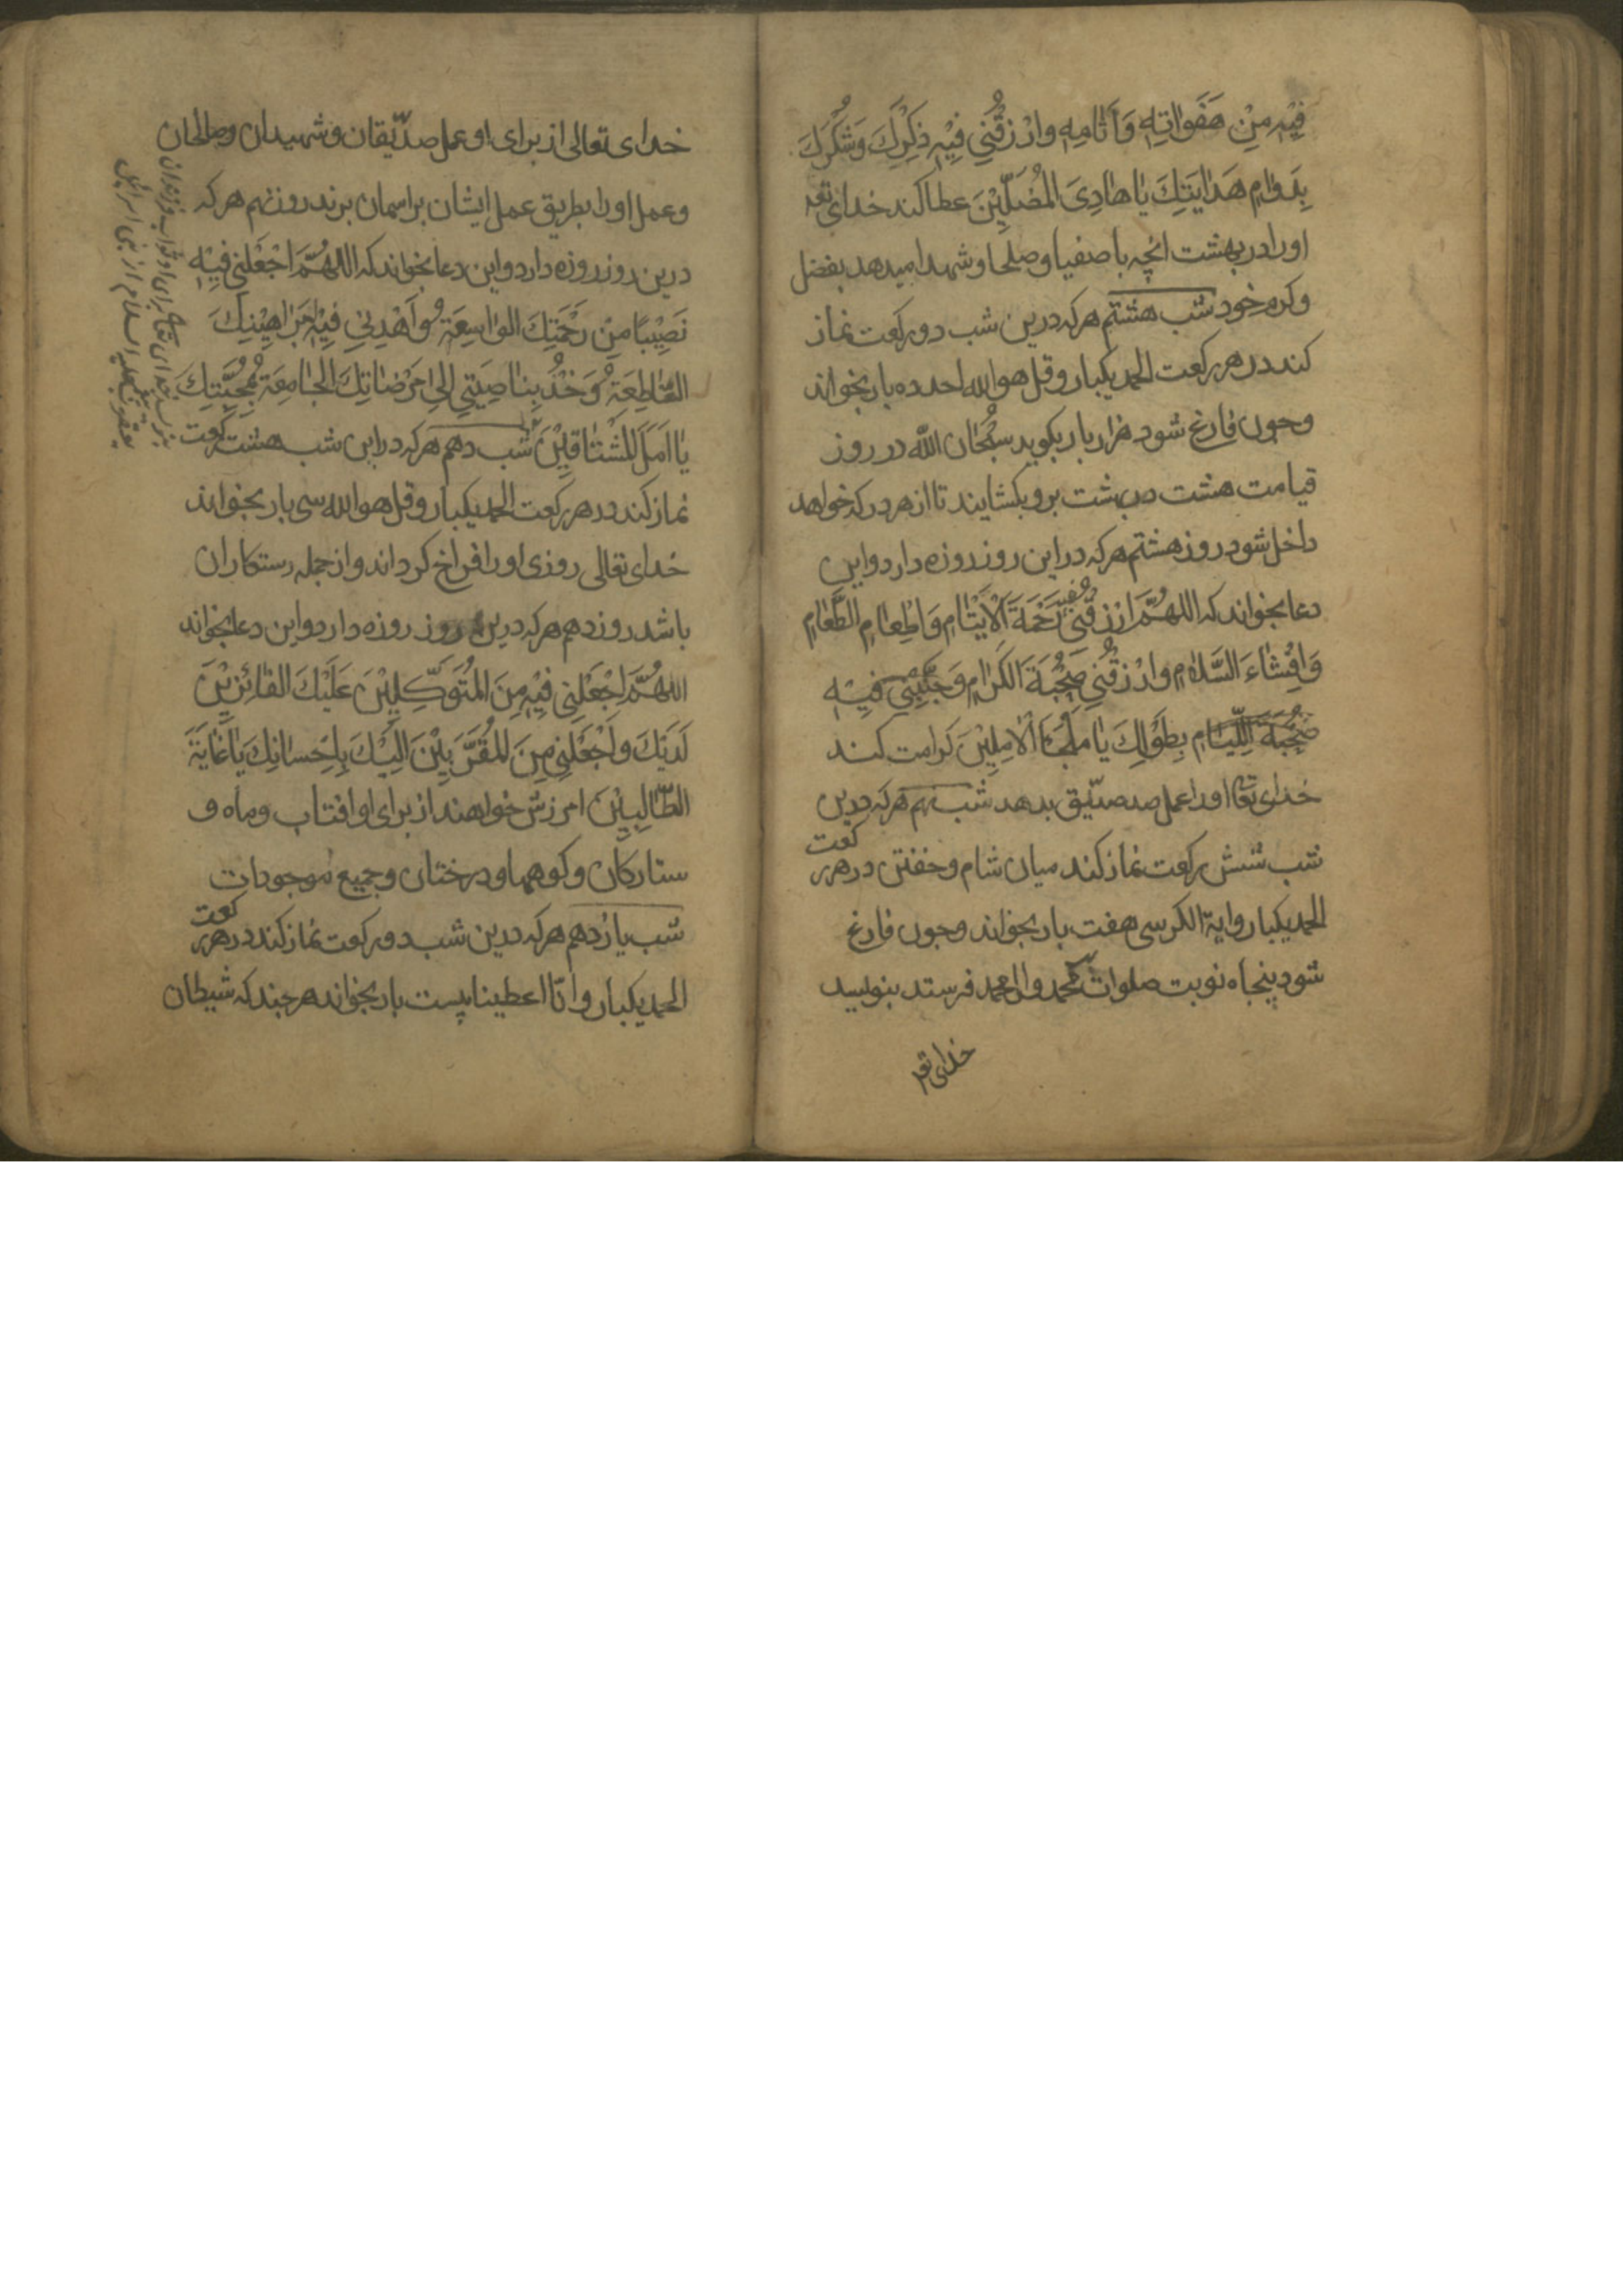 فِيْهِ مِنْ هَفَوَاتِهِ وَآثَامِهِ وارْزُقْنِي فِيْهِ ذِكْرَكَ وَشُكْرَكَ
بِدَوَامِ هَدَايَتِكَ يَا هَادِىَ المُضِلِّيْنَ عطا کند خدای تعه
اورا در بهشت انچه باصفیا وصلحا وشهدا میدهد بفضل
وکرم خود شب هشتم هرکه درین شب دورکعت نماز
کند در هر رکعت الحمد یکبار وقل هو الله احد ده بار بخواند
وچون فارغ شود هزار بار بکوید سُبْحَان اللّه در روز
قیامت هشت در بهشت برو بکشایند تا از هر در که خواهد
داخل شود روز هشتم هرکه در این روز روزه دارد واین
دعا بخواند که اللهُمَّ ارْزُقْنِي فِيْهِ رَحْمَةَ الْاَيْتَامِ وَاِطعَامِ الطَّعَامِ
وَاِفْشَاءَ السَّلَامِ وارْزُقْنِي صُحْبَةَ الكَرَامِ وَجَنِّبْنِي فِيْهِ
صُحْبَةَ اللِّيَامِ بِطَوْلِكَ يَا مَلْجَاَ الْاٰمِلِيْنَ کرامت کند
خدای تعا اورا عمل صد صدّیق بدهد شب نهم هرکه درین
شب شش رکعت نماز کند میان شام وخفتن در هر رکعت
الحمد یکبار وایة الکرسی هفت بار بخواند وچون فارغ
شود پنجاه نوبت صلوات بمحمد وال محمد فرستد بنویسد
خدای تعه
خدای تعالی از برای او عمل صدّیقان وشهیدان وصالحان
وعمل اورا بطریق عمل ایشان بر اسمان برند روز نهم هرکه
درین روز روزه دارد واین دعا بخواند که اللهُمَّ اجْعَلْنِي فِيْهِ
نَصِيْبًا مِنْ رَحْمَتِكَ الوَاسِعَةِ وَاَهْدِنِي فِيْهِ بَرَاهِيْنِكَ
القَاطِعَةِ وَخُذْ بِنَاصِيَتِي اِلٰى مَرْضَاتِكَ الجَامِعَةِ بِمُحِبَّتِكَ
يَا اَمَلَ المُشْتَاقِيْنَ شب دهم هرکه در این شب هشت رکعت
نماز کند در هر رکعت الحمد یکبار وقل هو الله سی بار بخواند
خدای تعالی روزی اورا فراخ کرداند واز جمله رستکاران
باشد روز دهم هرکه درین روز روزه دارد واین دعا بخواند
اللهُمَّ اجْعَلْنِي فِيْهِ مِنَ المُتَوَكِّلِيْنَ عَلَيْكَ الفَائِزِيْنَ
لَدَيْكَ واَجْعَلْنِي مِنَ المُقَرَّبِيْنَ اِلَيْكَ بِاِحْسَانِكَ يَا غَايَةَ
الطَّالِبِيْنَ امرزش خواهند از برای او افتاب وماه و
ستارکان وکوهها ودرختان وجمیع موجودات
شب یازدهم هرکه درین شب دو رکعت نماز کند در هر رکعت
الحمد یکبار وانّا اعطینا بیست بار بخواند هرچند که شیطان
خدای تعا برای او ثواب فرزندان
یعقوب علیه السلام از بنی اسرائیل